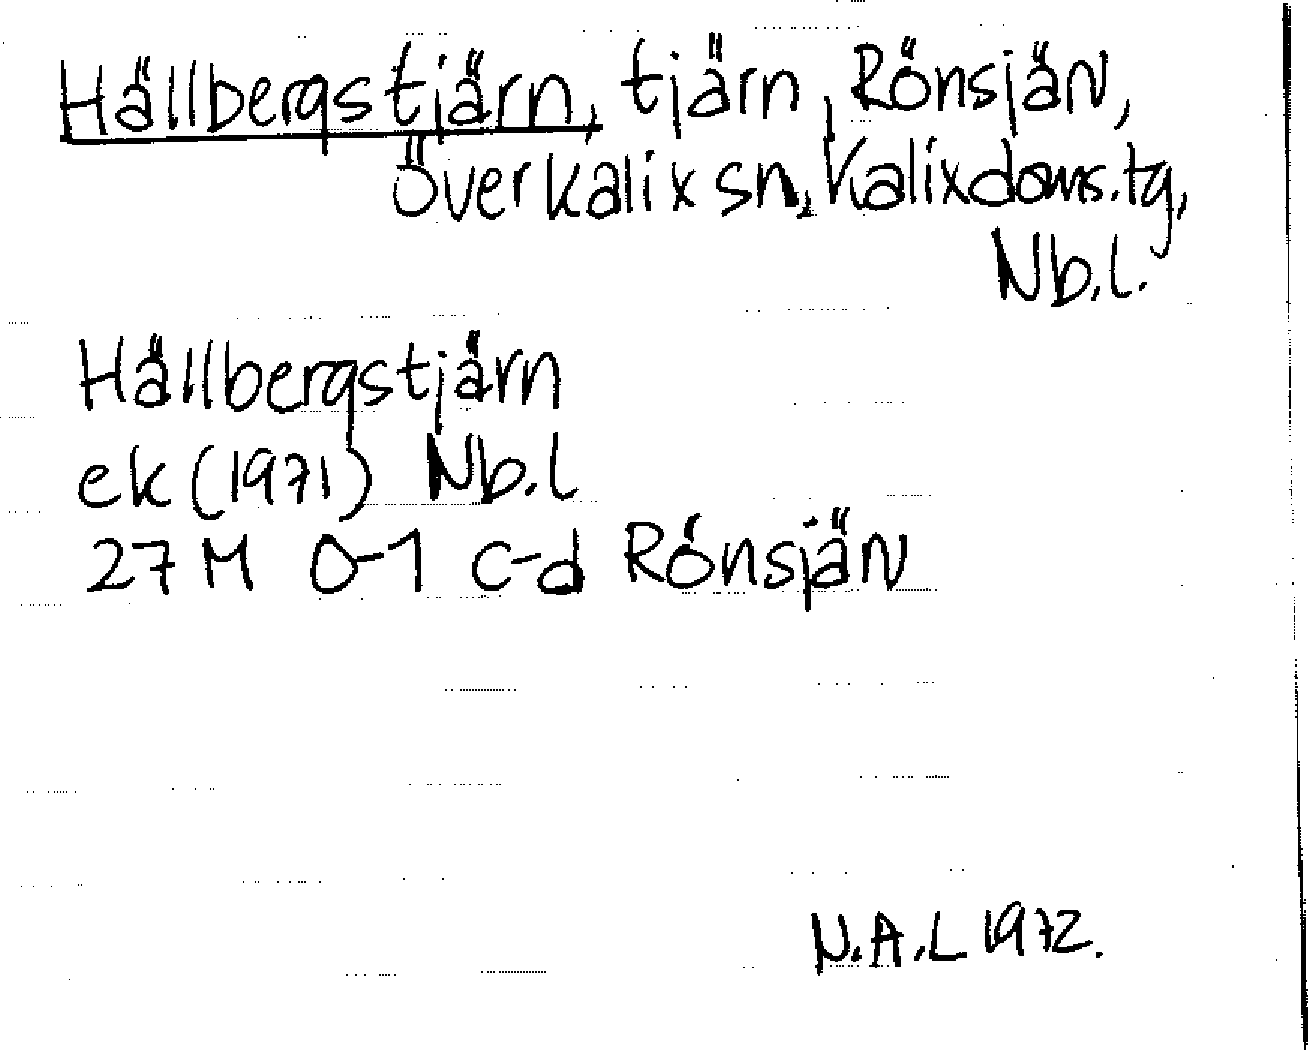 Hällbergstjärn, tjärn, Rönsjän,
Överkalix sn, Kalix doms.tg,
Nb.l.
Hällbergstjärn
ek (1971) Nb.l
27 M 0-1 c-d Rönsjän
N.A.L 1972.